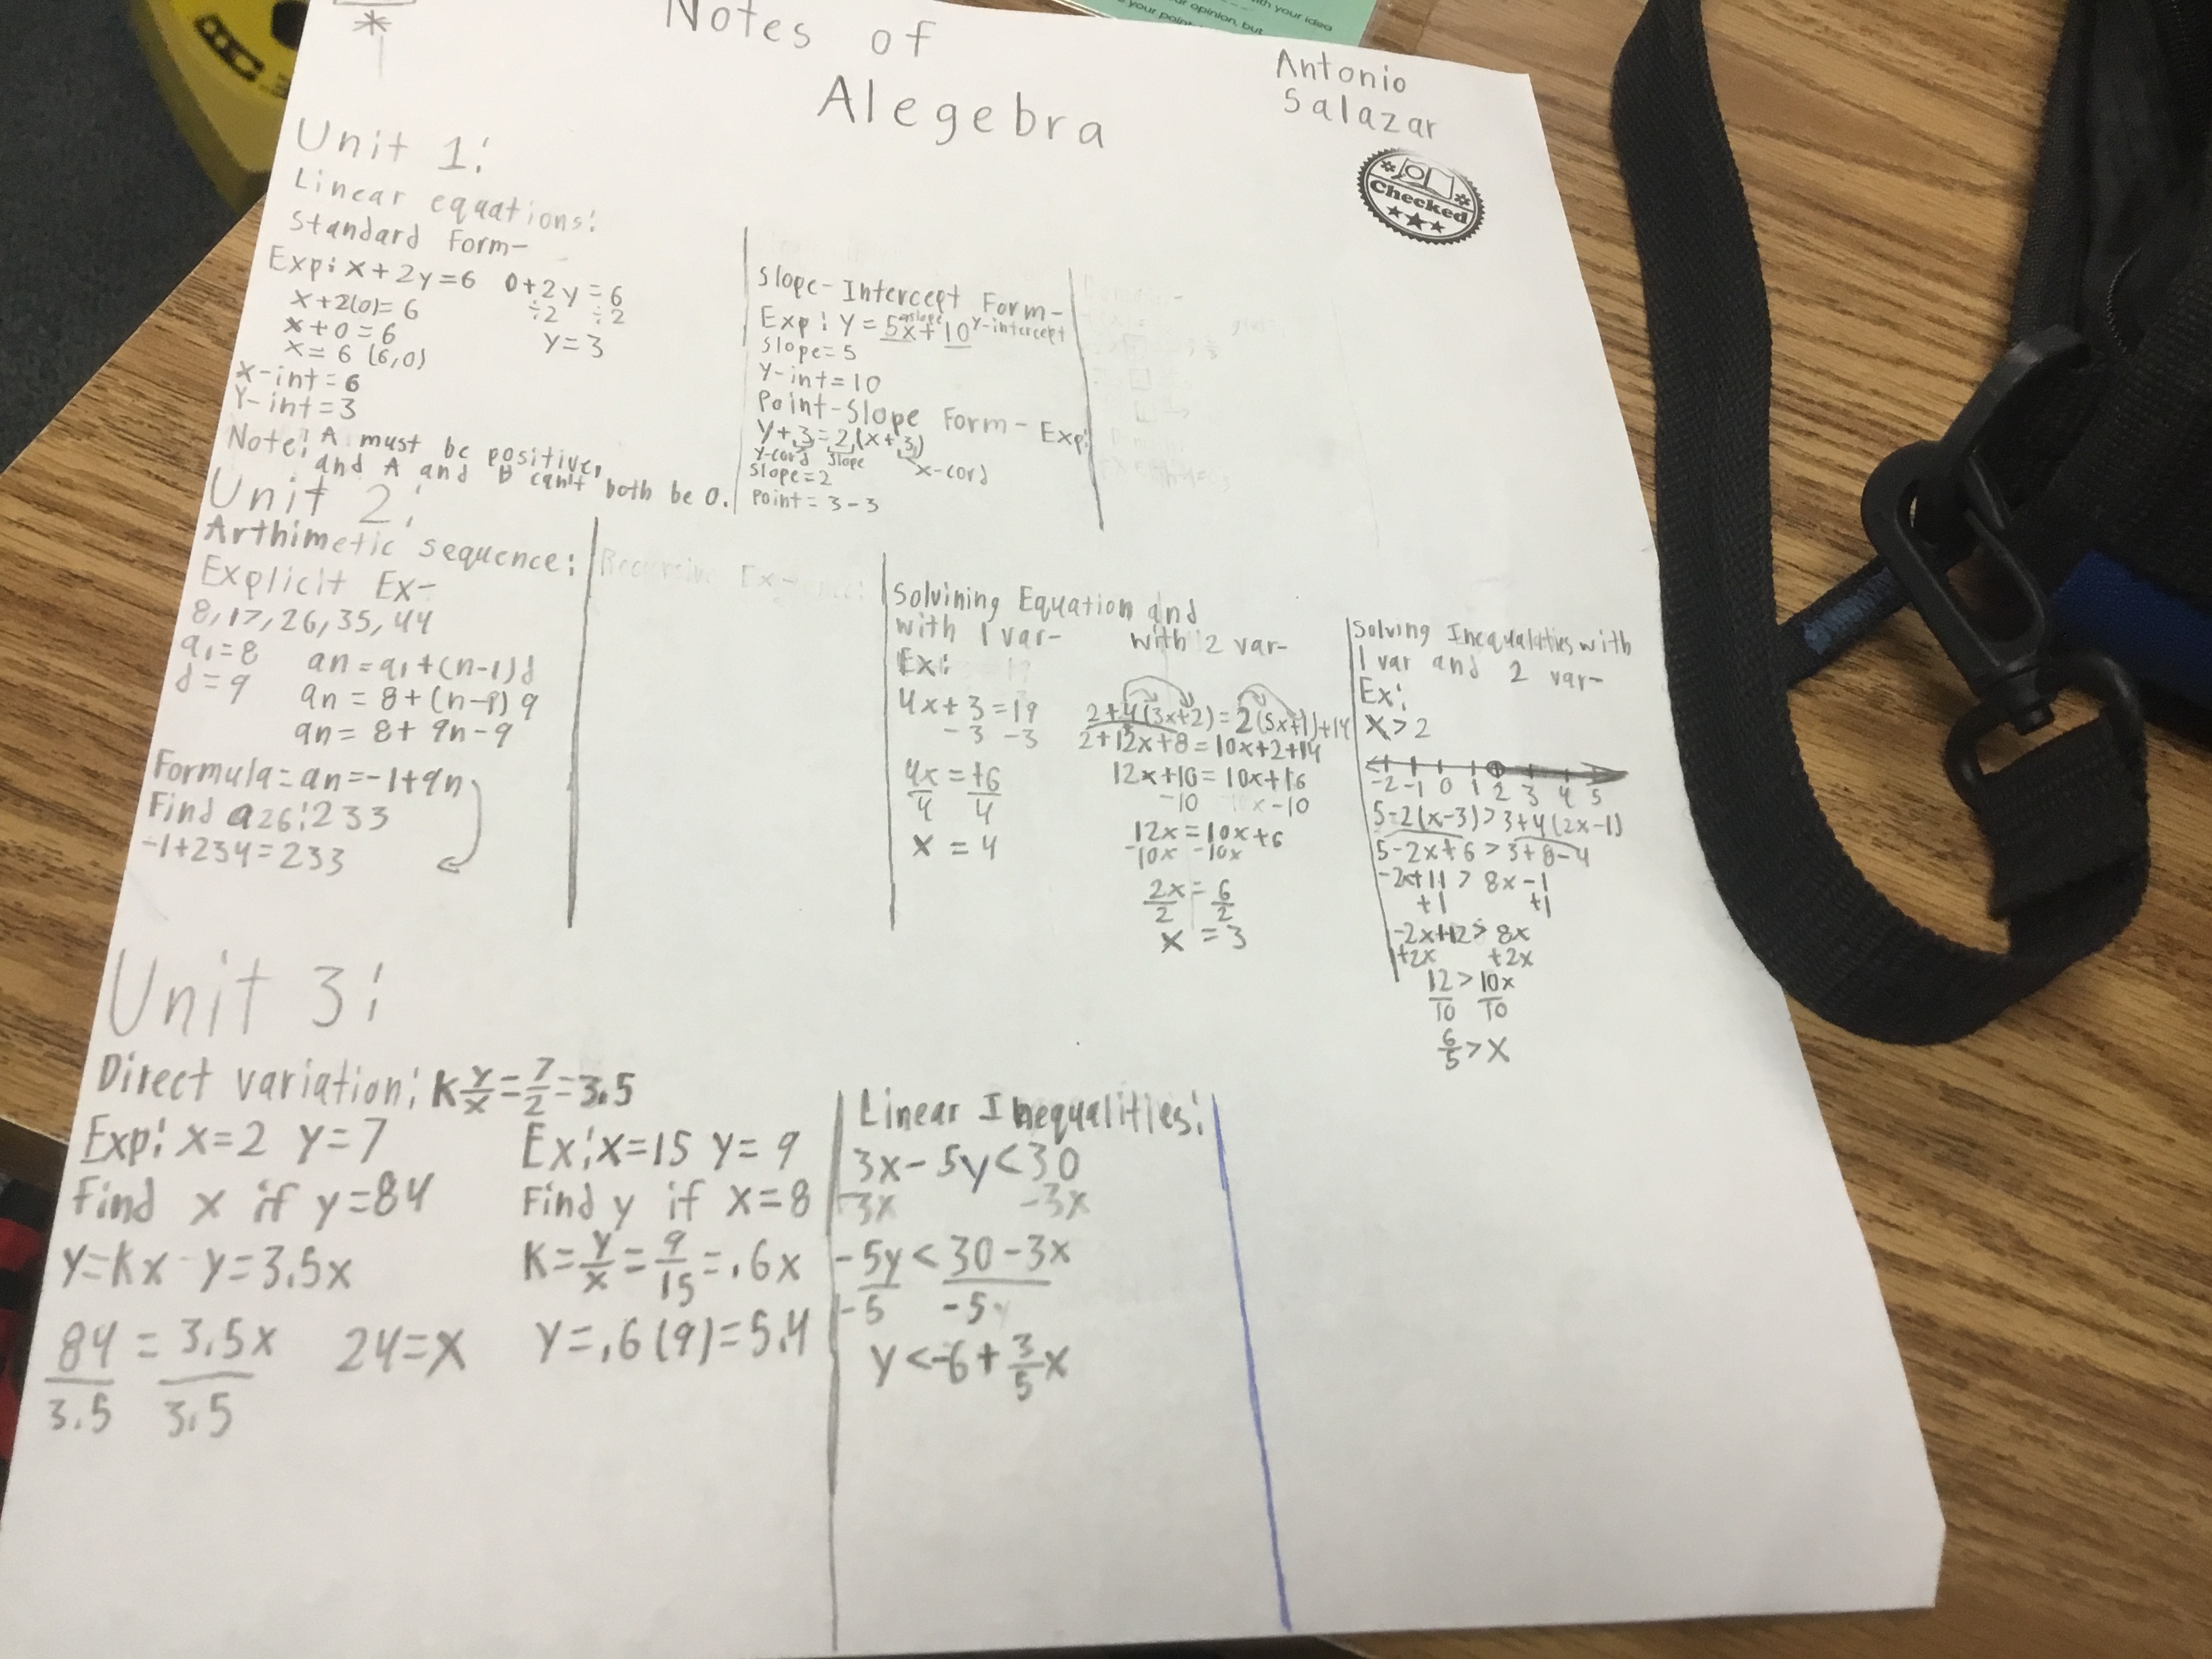 *
Notes of
Alegebra
Antonio
Salazar
Checked
Unit 1:
Linear equations:
Standard Form-
Exp: x+2y=6
x+2(0)=6
x+0=6
x=6 (6,0)
0+2y=6
÷2 ÷2
y=3
x-int=6
Y-int=3
Note: A must be positive,
and A and B can't both be 0.
Slope-Intercept Form-
Exp: y=5x+10 y-intercept
Slope=5
Y-int=10
Point-Slope Form- Exp:
y+3=2(x+3)
y-cord slope x-cord
Slope=2
Point=3-3
Unit 2:
Arthimetic sequence:
Explicit Ex-
8,17,26,35,44
a1=8
d=9
an=a1+(n-1)d
an=8+(n-1)9
an=8+9n-9
Formula=an=-1+9n
Find a26:233
-1+234=233
Solvining Equation and
with 1 var-
Ex:
4x+3=19
-3 -3
4x=16
4 4
x=4
with 2 var-
2+4(3x+2)=2(5x+1)+14
2+12x+8=10x+2+14
12x+10=10x+16
-10 -10
12x=10x+6
-10x -10x
2x=6
2 2
x=3
Solving Inequalaties with
1 var and 2 var-
Ex:
x>2
-2 -1 0 1 2 3 4 5
5-2(x-3)>3+4(2x-1)
5-2x+6>3+8-4
-2x+11>8x-1
+1 +1
-2x+12>8x
+2x +2x
12>10x
10 10
6/5>x
Unit 3:
Direct variation: K y/x=7/2=3.5
Exp: x=2 y=7
Find x if y=84
y=kx y=3.5x
84=3.5x 24=x
3.5 3.5
Ex: x=15 y=9
Find y if x=8
K=y/x=9/15=.6x
y=.6(9)=5.4
Linear Inequalities:
3x-5y<30
-3x -3x
-5y<30-3x
-5 -5
y<-6+3/5x